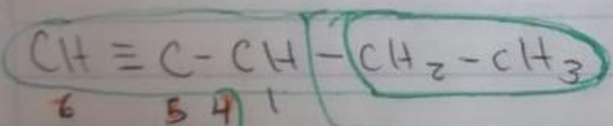 CH ≡ C - CH - CH₂ - CH₃
6 5 4 1